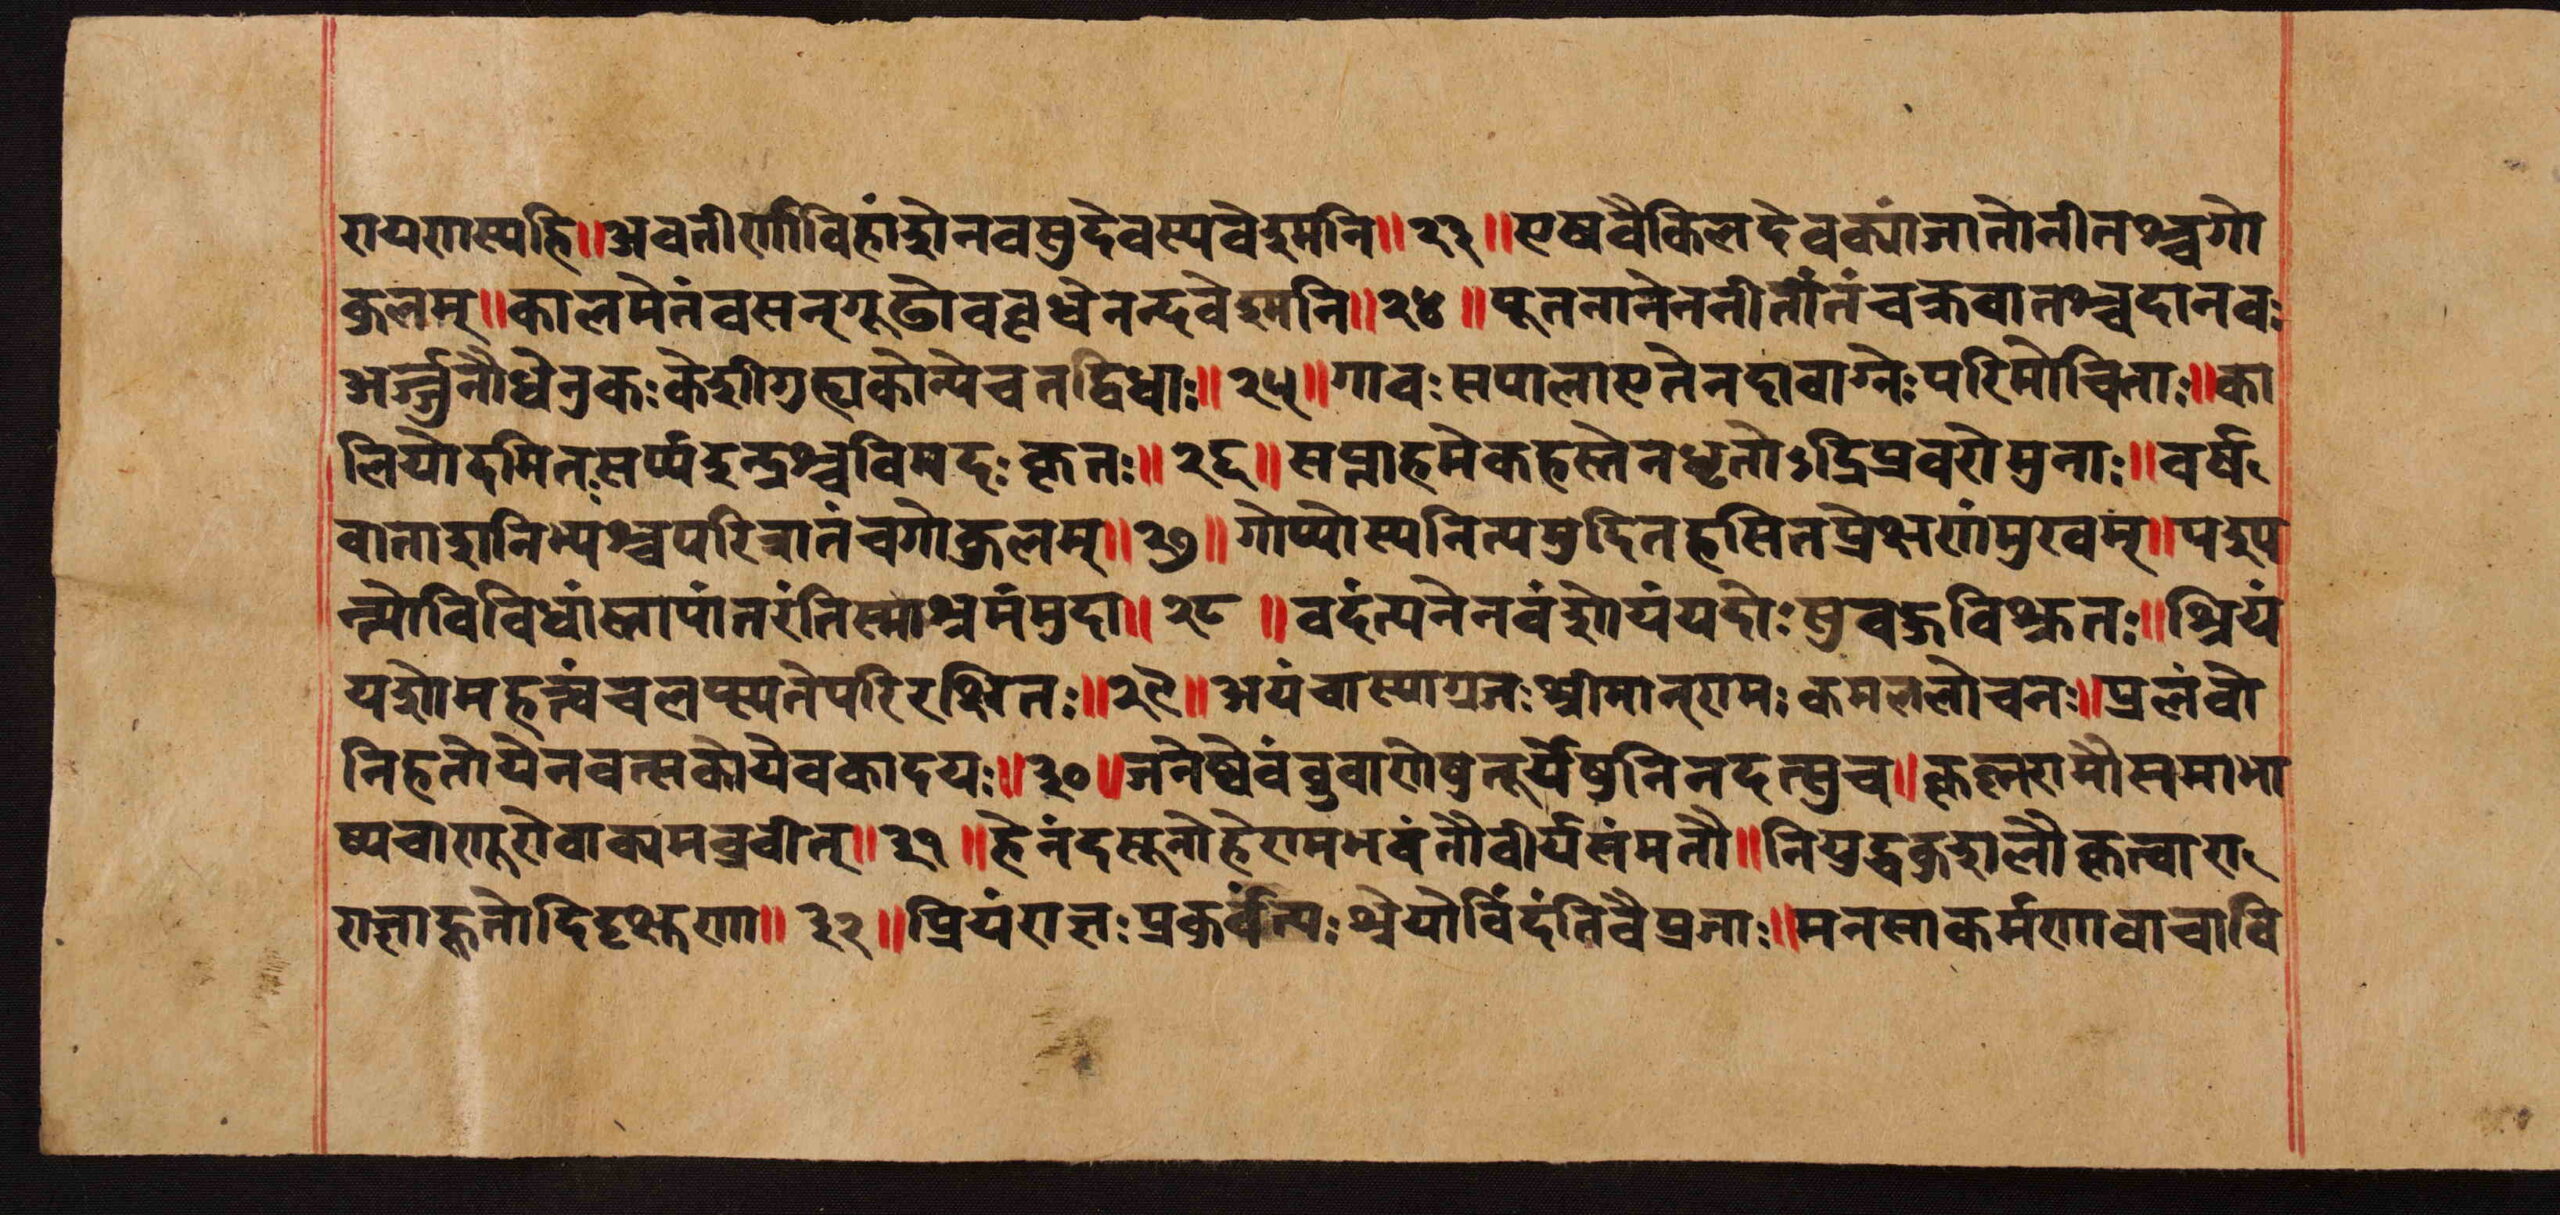 रायणस्यहि॥अवतीर्णाविहांशेनवसुदेवस्यवेश्मनि॥२३॥एषवैकिलदेवक्यांजातोनीतश्चगो
कुलम्॥कालमेतंवसन्गूढोववृधेनन्दवेश्मनि॥२४॥पूतनानेननीतांतंचक्रवातश्चदानवः
अर्ज्जुनौधेनुकःकेशीगुह्यकोन्येचतद्विधाः॥२५॥गावःसपालाएतेनदावाग्नेःपरिमोचिताः॥का
लियोदमितःसर्प्पइन्द्रश्चविमदःकृतः॥२६॥सप्ताहमेकहस्तेनधृतोऽद्रिप्रवरोमुनाः॥वर्ष
वाताशनिभ्यश्चपरित्रातंचगोकुलम्॥२७॥गोप्योस्यनित्यमुदितहसितप्रेक्षणंमुखम्॥पश्य
न्त्योविविधांस्तापांतरंतिस्माश्रमंमुदा॥२८॥वदंत्यनेनवंशोयंयदोःसुबहुविश्रुतः॥श्रियं
यशोमहत्त्वंचलप्स्यतेपरिरक्षितः॥२९॥अयंचास्याग्रजःश्रीमान्रामःकमललोचनः॥प्रलंबो
निहतोयेनवत्सकोयेवकादयः॥३०॥जनेष्वेवंब्रुवाणेषुतूर्येषुनिनदत्सुच॥कृष्णरामौसमाभा
ष्यचाणूरोवाक्यमब्रवीत्॥३१॥हेनंदसूनोहेरामभवंतौवीर्यसंमतौ॥नियुद्धकुशलौकृत्वारा
राज्ञाहूतोदिदृक्षुणा॥३२॥प्रियंराज्ञःप्रकुर्वंत्यःश्रेयोविंदंतिवैप्रजाः॥मनसाकर्मणावाचावि